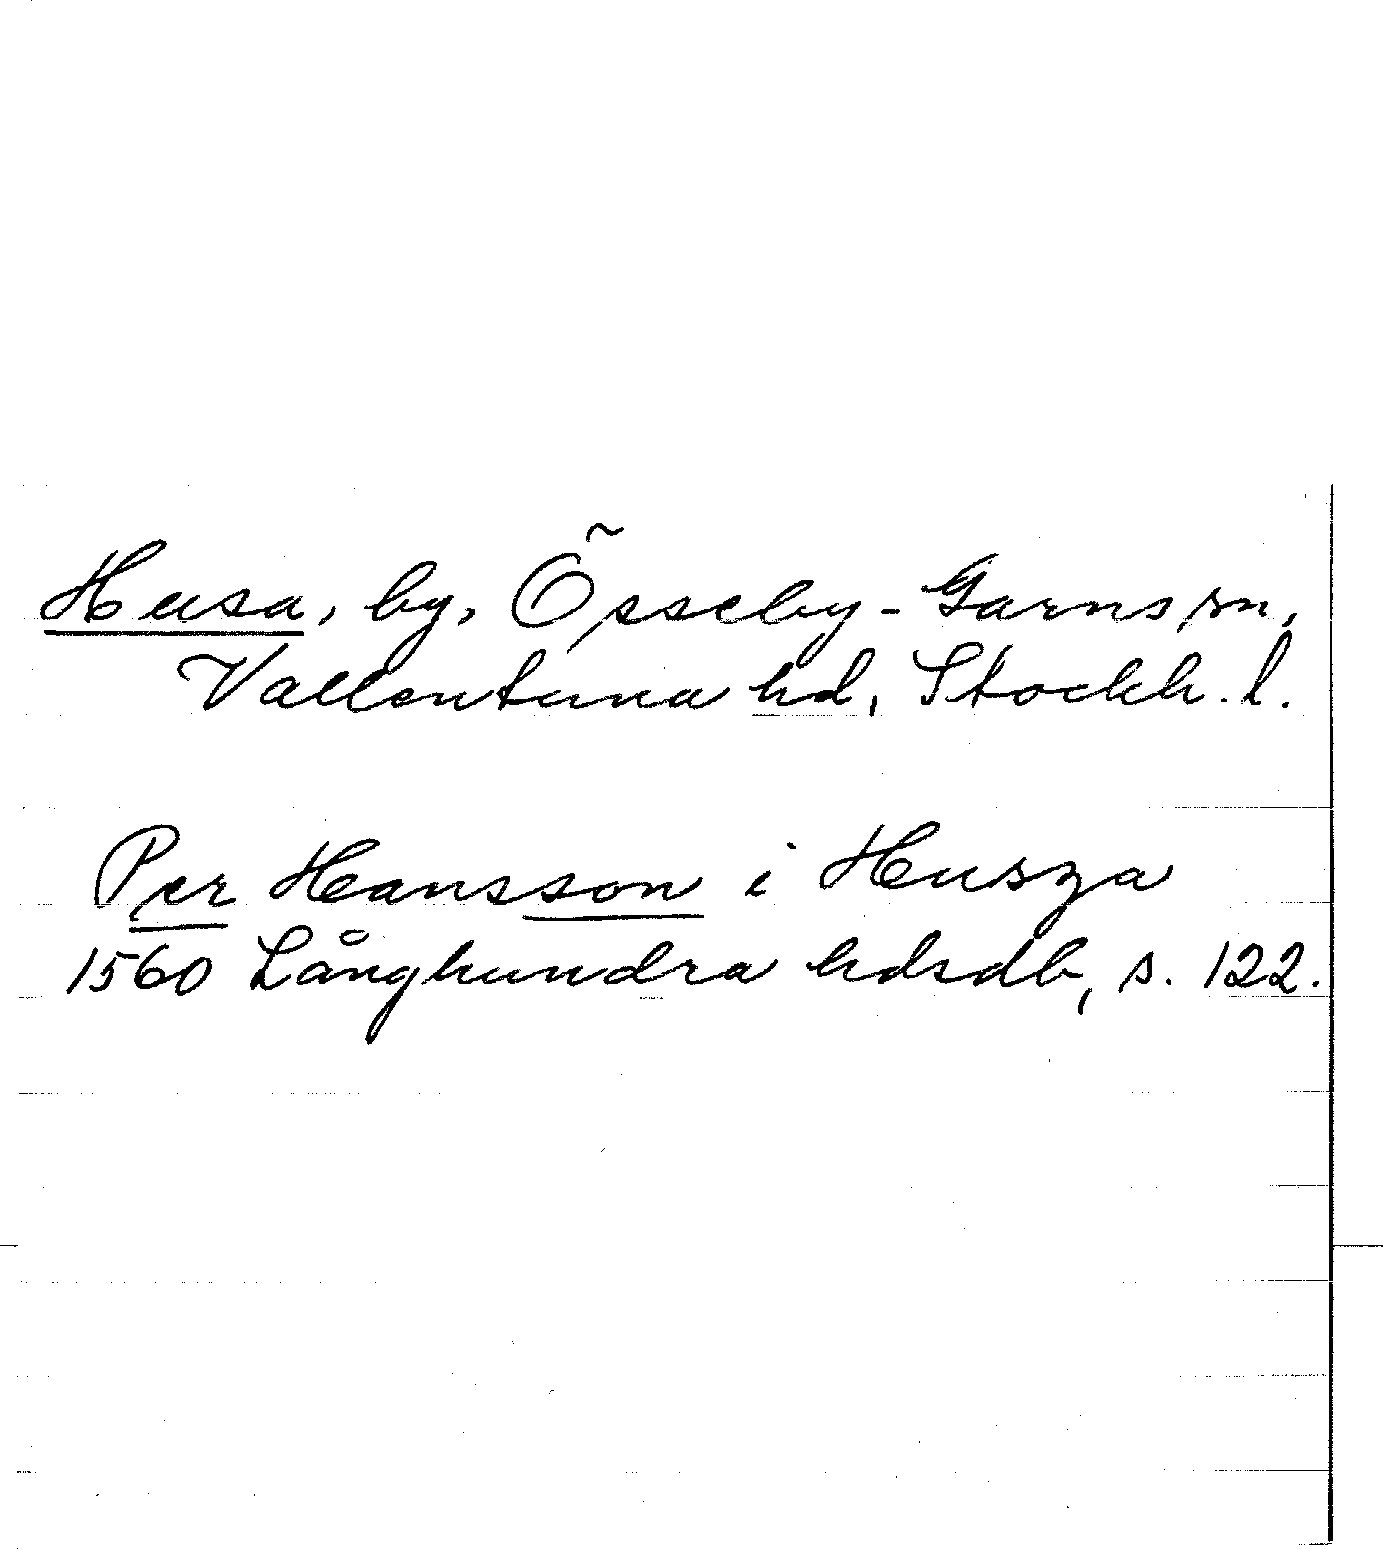 Husa, by, Össeby-Garns sn,
Vallentuna hd, Stockh. l.
Per Hansson i Husza
1560 Långhundra hdsdb, s. 122.